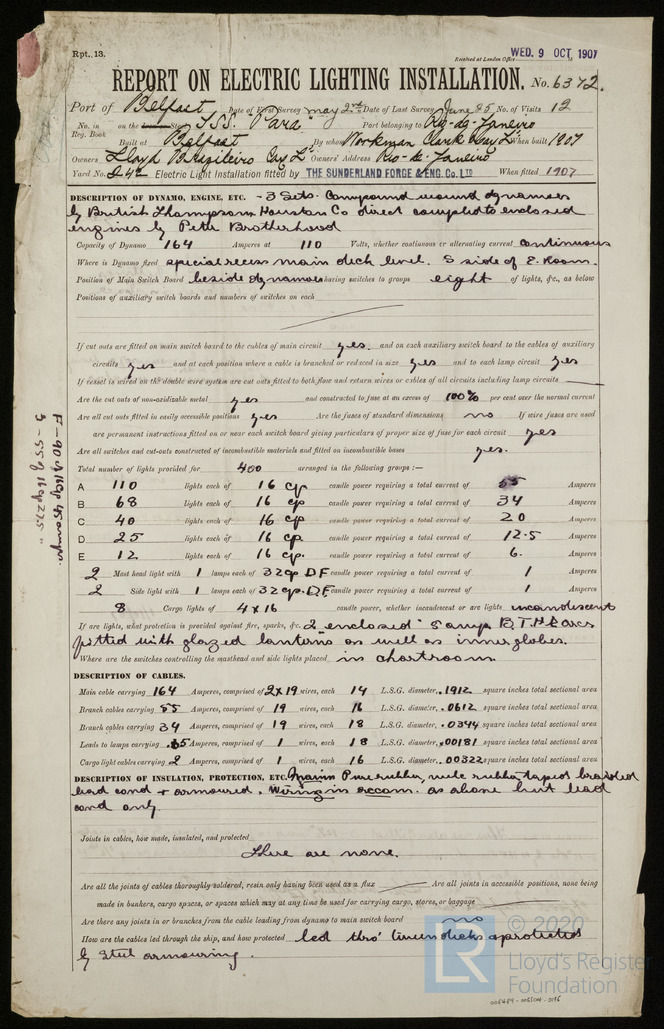 Rpt. 13.
Received at London Office WED. 9 OCT. 1907
REPORT ON ELECTRIC LIGHTING INSTALLATION. No. 6372.
Port of Belfast Date of First Survey May 2nd Date of Last Survey June 25 No. of Visits 12
No. in Reg. Book on the Iron or Steel TSS. "Para" Port belonging to Rio-de-Janeiro
Built at Belfast By whom Workman Clark & Coy Ld When built 1907
Owners Lloyd Brazileiro Coy Ld Owners' Address Rio-de-Janeiro
Yard No. 242 Electric Light Installation fitted by THE SUNDERLAND FORGE & ENG. Co. LTD When fitted 1907
DESCRIPTION OF DYNAMO, ENGINE, ETC. - 3 Sets. Compound wound dynamos
by British Thompson Houston Co direct coupled to enclosed
engines by Peter Brotherhood
Capacity of Dynamo 164 Amperes at 110 Volts, whether continuous or alternating current continuous
Where is Dynamo fixed special recess main deck level. S side of E. Room.
Position of Main Switch Board beside dynamos having switches to groups eight of lights, &c., as below
Positions of auxiliary switch boards and numbers of switches on each
If cut outs are fitted on main switch board to the cables of main circuit yes. and on each auxiliary switch board to the cables of auxiliary
circuits yes and at each position where a cable is branched or reduced in size yes and to each lamp circuit yes
If vessel is wired on the double wire system are cut outs fitted to both flow and return wires or cables of all circuits including lamp circuits
Are the cut outs of non-oxidizable metal yes and constructed to fuse at an excess of 100% per cent over the normal current
Are all cut outs fitted in easily accessible positions yes Are the fuses of standard dimensions no If wire fuses are used
are permanent instructions fitted on or near each switch board giving particulars of proper size of fuse for each circuit yes
Are all switches and cut-outs constructed of incombustible materials and fitted on incombustible bases yes.
Total number of lights provided for 400 arranged in the following groups :—
A 110 lights each of 16 cp candle power requiring a total current of 55 Amperes
B 68 lights each of 16 cp candle power requiring a total current of 34 Amperes
C 40 lights each of 16 cp candle power requiring a total current of 20 Amperes
D 25 lights each of 16 cp candle power requiring a total current of 12.5 Amperes
E 12 lights each of 16 cp. candle power requiring a total current of 6. Amperes
2 Mast head light with 1 lamps each of 32 cp DF candle power requiring a total current of 1 Amperes
2 Side light with 1 lamps each of 32 cp. DF candle power requiring a total current of 1 Amperes
8 Cargo lights of 4 x 16 candle power, whether incandescent or arc lights incandescent
If arc lights, what protection is provided against fire, sparks, &c. 2 enclosed 5 amp B.T.H arcs
fitted with glazed lanterns as well as inner globes.
Where are the switches controlling the masthead and side lights placed in chartroom
DESCRIPTION OF CABLES.
Main cable carrying 164 Amperes, comprised of 2x19 wires, each 14 L.S.G. diameter, .1912 square inches total sectional area
Branch cables carrying 55 Amperes, comprised of 19 wires, each 16 L.S.G. diameter, .0612 square inches total sectional area
Branch cables carrying 34 Amperes, comprised of 19 wires, each 18 L.S.G. diameter, .0344 square inches total sectional area
Leads to lamps carrying .55 Amperes, comprised of 1 wires, each 18 L.S.G. diameter, .00181 square inches total sectional area
Cargo light cables carrying 2 Amperes, comprised of 1 wires, each 16 L.S.G. diameter, .00322 square inches total sectional area
DESCRIPTION OF INSULATION, PROTECTION, ETC. Mains Pure rubber, vulc rubber taped braided
lead cond + armoured. Wiring in accom. as above but lead
cond only.
Joints in cables, how made, insulated, and protected
There are none.
Are all the joints of cables thoroughly soldered, resin only having been used as a flux Are all joints in accessible positions, none being
made in bunkers, cargo spaces, or spaces which may at any time be used for carrying cargo, stores, or baggage
Are there any joints in or branches from the cable leading from dynamo to main switch board no
How are the cables led through the ship, and how protected led thro' tween decks & protected
by steel armouring.
F - 90 of 16cp 45 amps.
G - 55 of 16cp 27.5 "
LR
© 2020
Lloyd's Register
Foundation